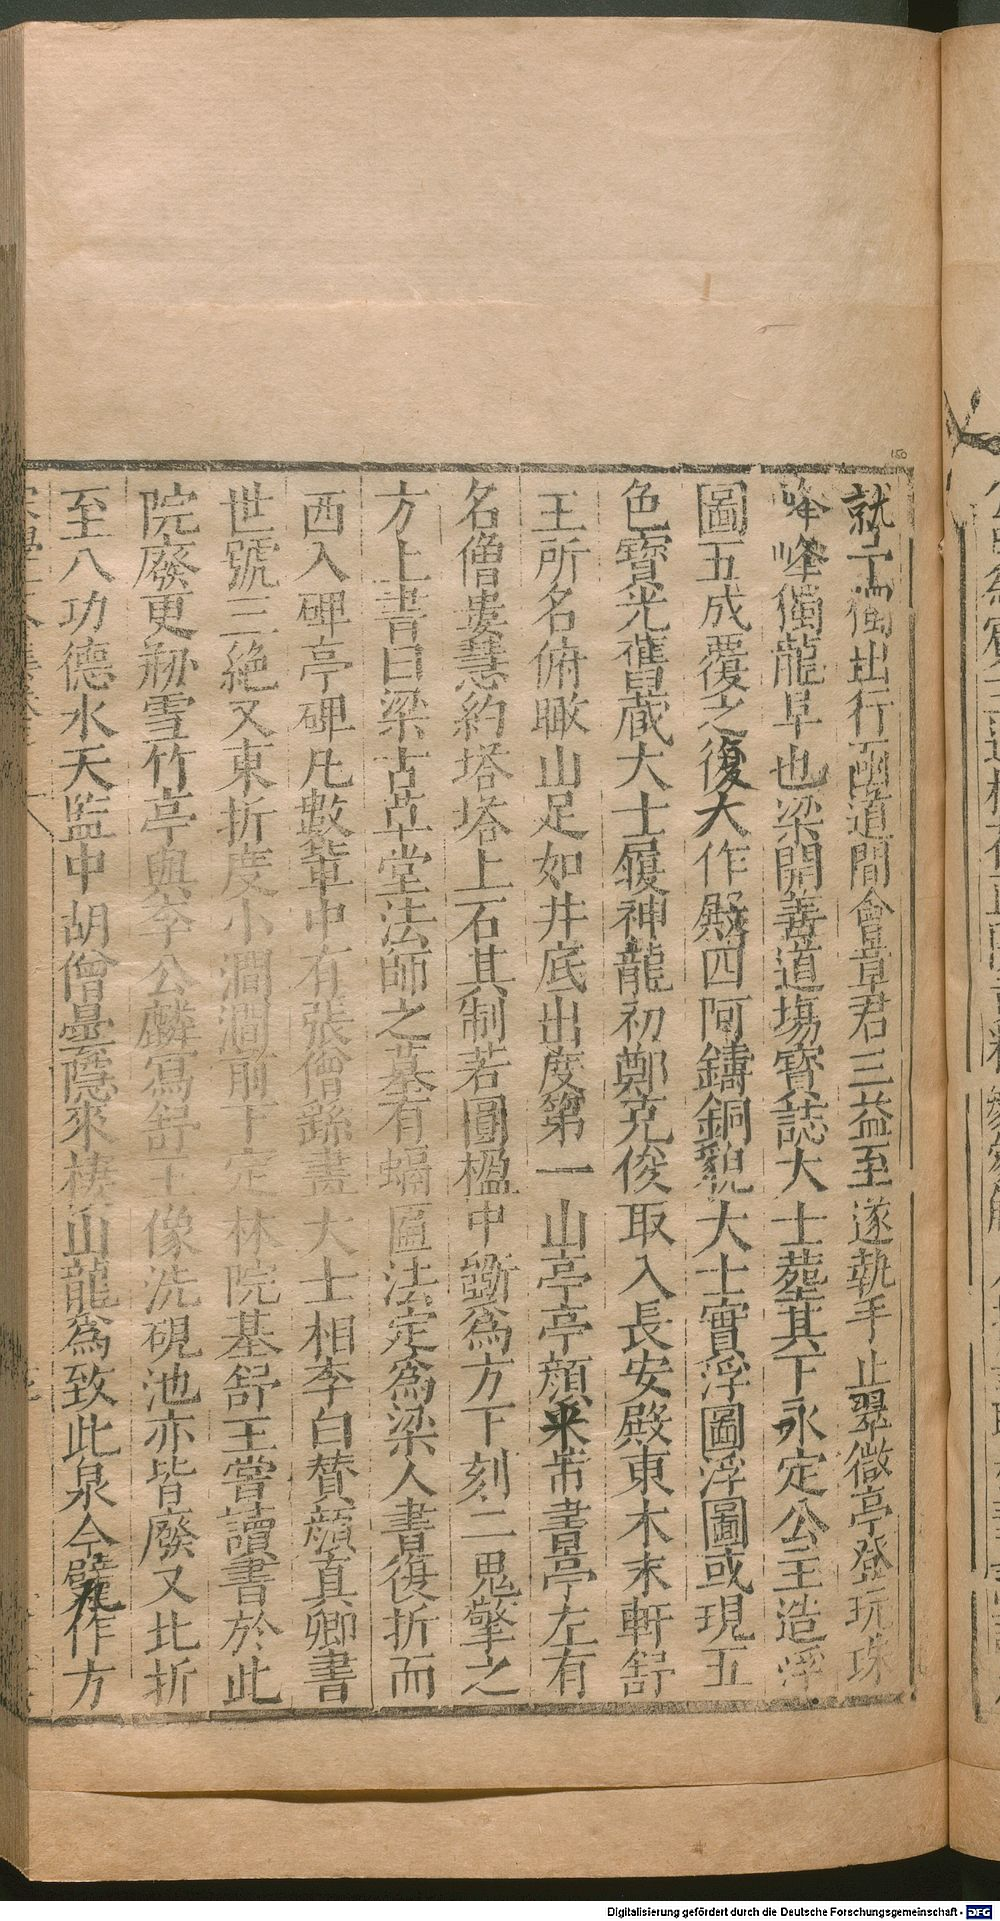 就予獨出行函道間會章君三益至遂執手止翠微亭登玩珠
峰峰獨龍阜也梁開善道塲寶誌大士葬其下永定公主造浮
圖五成覆之後大作殿四阿鑄銅貌大士實浮圖浮圖或現五
色寶光舊藏大士履神龍初鄭克俊取入長安殿東木末軒舒
王所名俯瞰山足如井底出度第一山亭亭顏米芾書亭左有
名僧婁慧約塔塔上石其制若圓楹中斵為方下刻二鬼擎之
方上書曰梁古草堂法師之墓有螎匾法定為梁人書復折而
西入碑亭碑凡數輩中有張僧繇畫大士相李白賛顏真卿書
世號三絶又東折度小澗澗前下定林院基舒王嘗讀書於此
院廢更刱雪竹亭與李公麟寫舒王像洗硯池亦皆廢又北折
至八功德水天監中胡僧曇隱來棲山龍為致此泉今甃作方
150
Digitalisierung gefördert durch die Deutsche Forschungsgemeinschaft - DFG